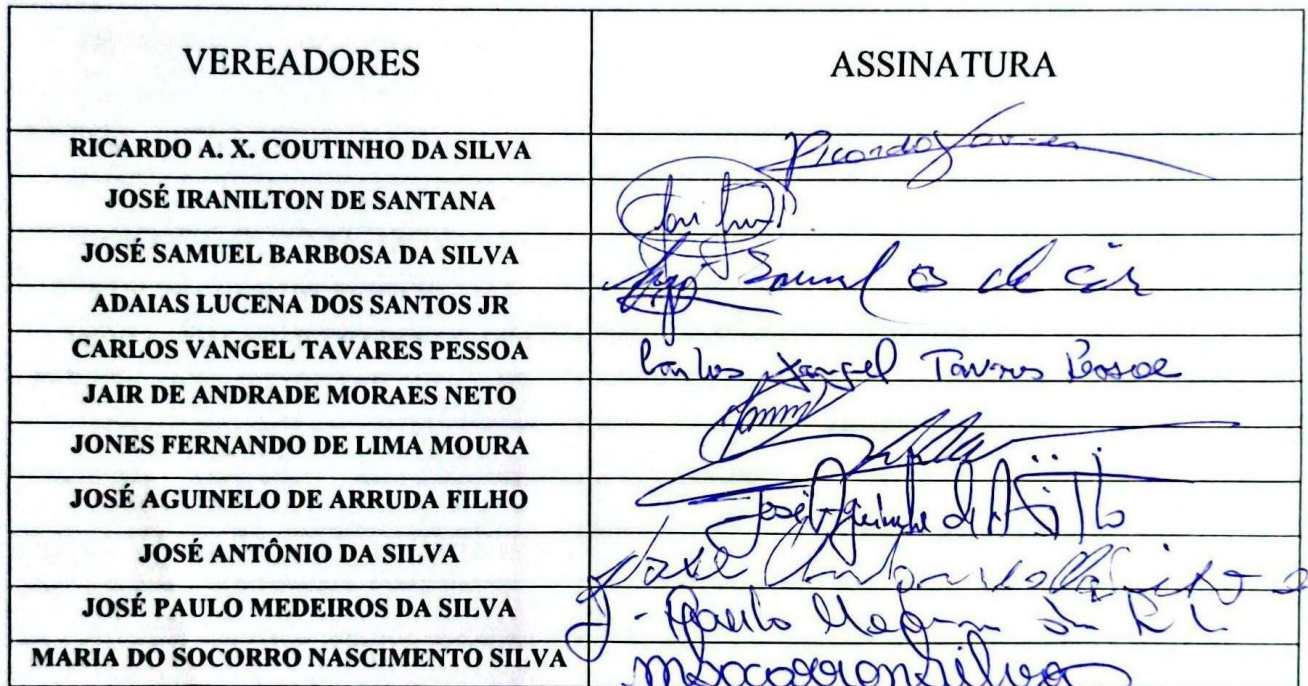 VEREADORES ASSINATURA
RICARDO A. X. COUTINHO DA SILVA Ricardo Xavier
JOSÉ IRANILTON DE SANTANA
JOSÉ SAMUEL BARBOSA DA SILVA
ADAIAS LUCENA DOS SANTOS JR
CARLOS VANGEL TAVARES PESSOA Carlos Vangel Tavares Pessoa
JAIR DE ANDRADE MORAES NETO
JONES FERNANDO DE LIMA MOURA
JOSÉ AGUINELO DE ARRUDA FILHO José
JOSÉ ANTÔNIO DA SILVA José
JOSÉ PAULO MEDEIROS DA SILVA J. Paulo
MARIA DO SOCORRO NASCIMENTO SILVA msocorronsilva